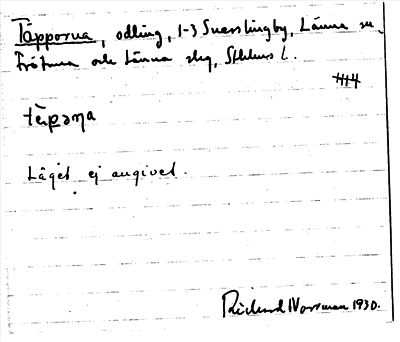 Täpporna, odling, 1-3 Svensslingby, Länna sn,
Frötuna och Länna slg, Sthlms l.
tèpəɳa
Läget ej angivet.
Rickard Norrman 1930.